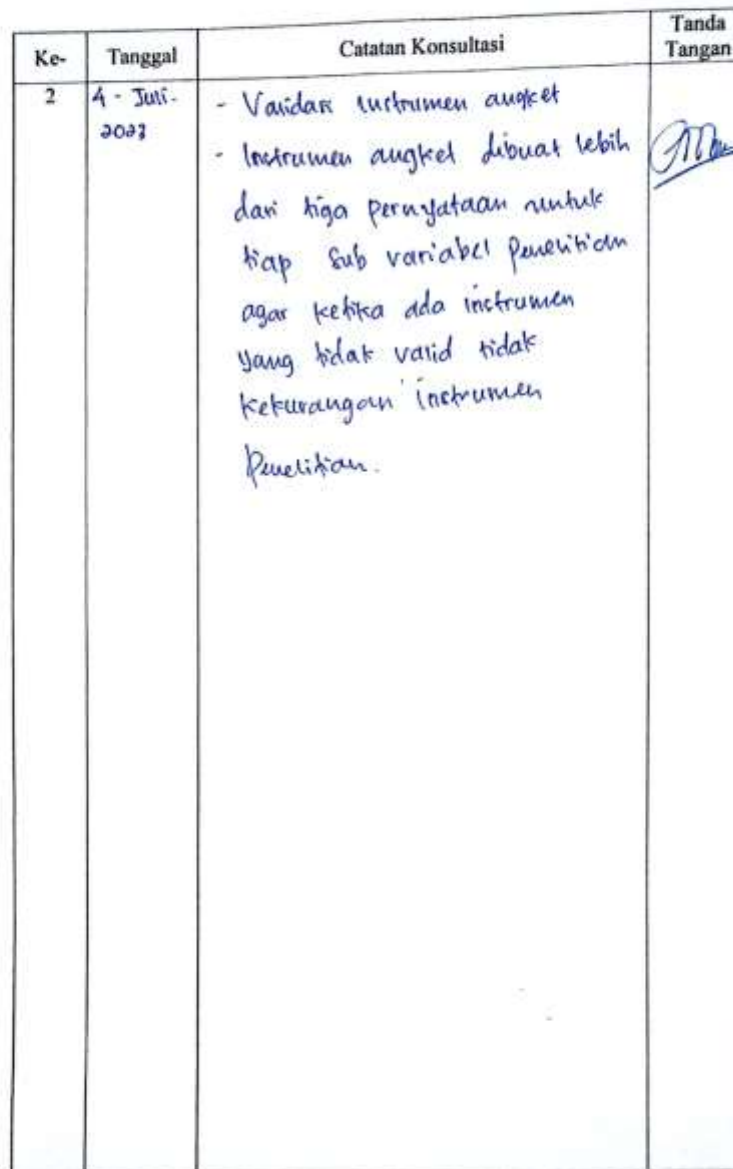 Ke- Tanggal Catatan Konsultasi Tanda Tangan
2 4 - Juli - 2023
- Validasi instrumen angket
- Instrumen angket dibuat lebih
dari tiga pernyataan untuk
tiap sub variabel penelitian
agar ketika ada instrumen
yang tidak valid tidak
kekurangan instrumen
Penelitian.